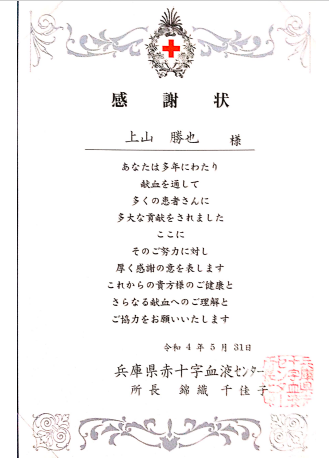 感謝状
上山 勝也 様
あなたは多年にわたり
献血を通して
多くの患者さんに
多大な貢献をされました
ここに
そのご努力に対し
厚く感謝の意を表します
これからの貴方様のご健康と
さらなる献血へのご理解と
ご協力をお願いいたします
令和4年5月31日
兵庫県赤十字血液センター
所長 錦織 千佳子